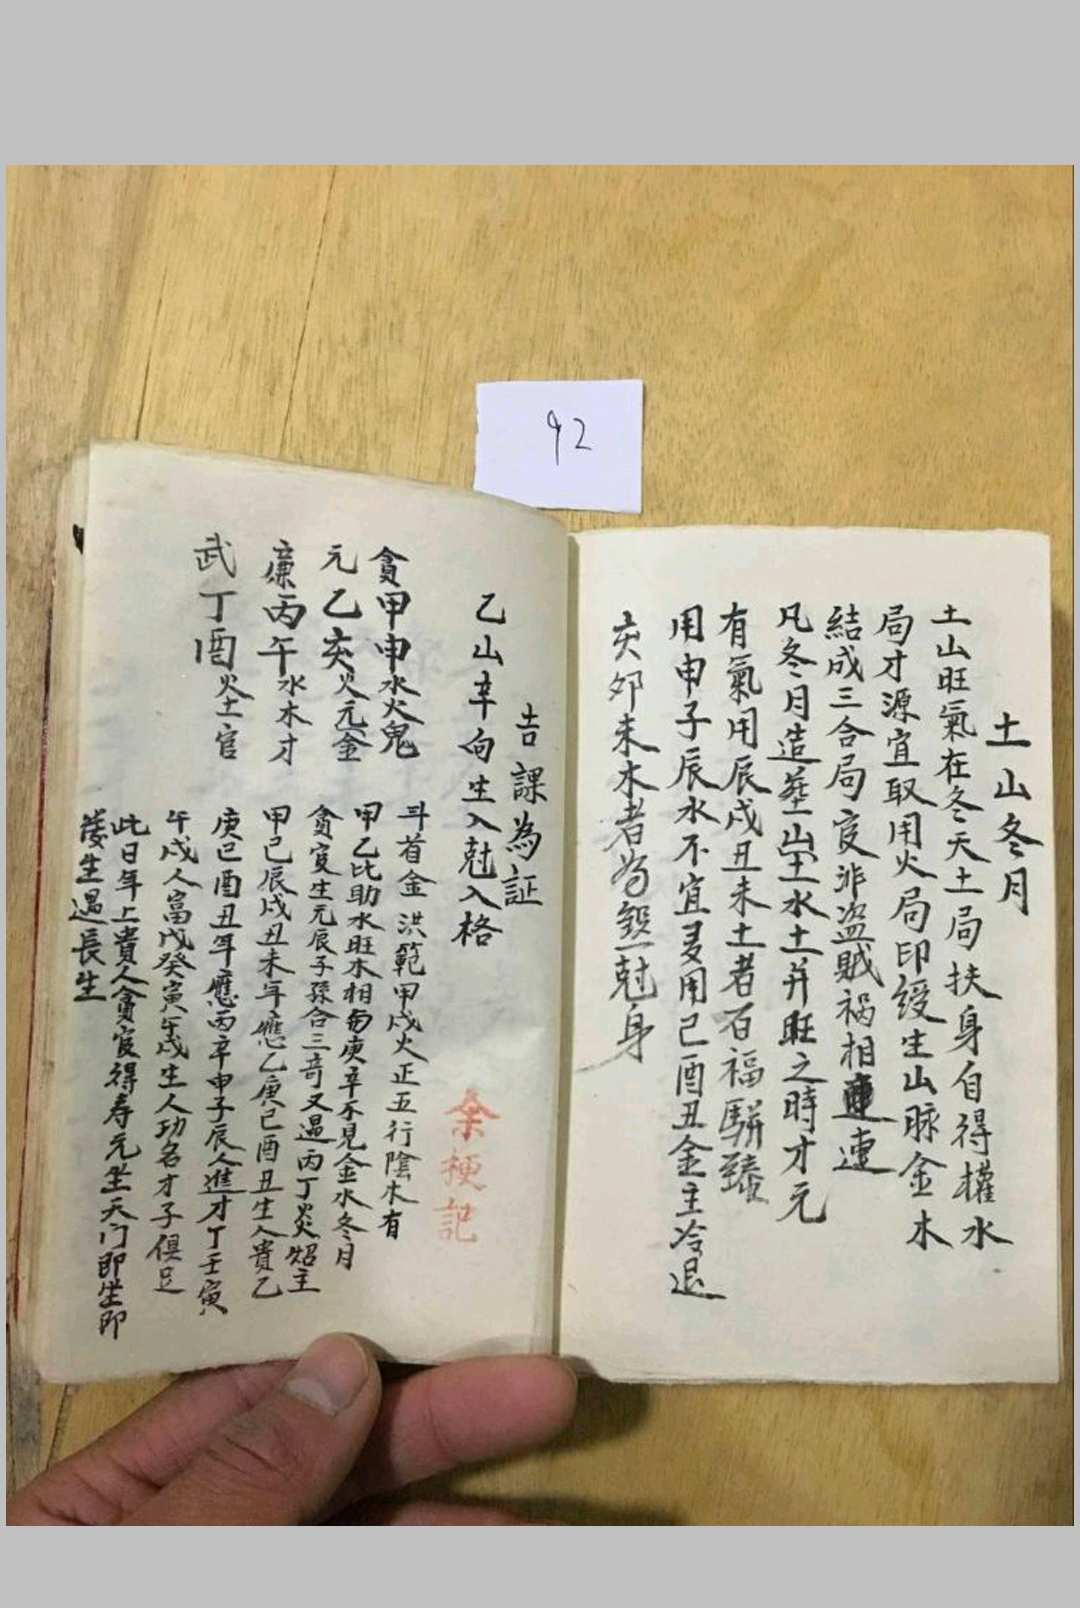 92
土山冬月
土山旺氣在冬天土局扶身自得權水
局才源宜取用火局印綬生山脉金木
結成三合局官非盗賊祸相連
凡冬月造葬山土水土并旺之時才元
有氣用辰戌丑未土者百福駢臻
用申子辰水不宜多用巳酉丑金主冷退
亥卯未木者为煞尅身
吉課為証
乙山辛向生入尅入格
余梗記
貪甲申水火鬼
元乙亥火元金
廉丙午水木才
武丁酉火土官
斗首金洪範甲戌火正五行陰木有
甲乙比助水旺木相而庚辛不見金水冬月
貪官生元辰子孫合三奇又遇丙丁火炤主
甲己辰戌丑未年應乙庚巳酉丑生人貴乙
庚巳酉丑年應丙辛申子辰人進才丁壬寅
午戌人富戊癸寅午戌生人功名才子俱足
此日年上貴人貪官得寿元坐天门即坐即
蔆生遇長生